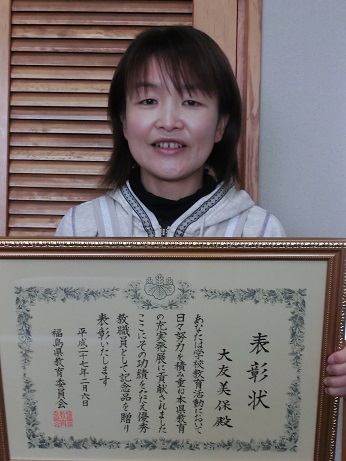 表彰状
大友美保殿
あなたは学校教育活動において
日々努力を積み重ね本県教育
の充実発展に貢献されました
ここにその功績をたたえ優秀
教職員として記念品を贈り
表彰いたします
平成二十七年二月六日
福島県教育委員会